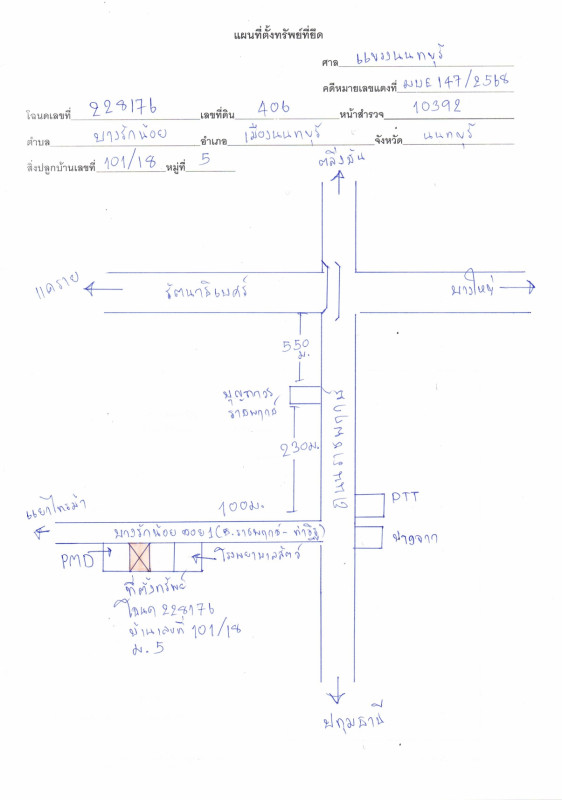 แผนที่ตั้งทรัพย์ที่ยึด
ศาล แขวงนนทบุรี
คดีหมายเลขแดงที่ ผบE 147/2568
โฉนดเลขที่ 228176 เลขที่ดิน 406 หน้าสำรวจ 10392
ตำบล บางรักน้อย อำเภอ เมืองนนทบุรี จังหวัด นนทบุรี
สิ่งปลูกบ้านเลขที่ 101/18 หมู่ที่ 5
ตลิ่งชัน
แคราย
รัตนาธิเบศร์
บางใหญ่
550
ม.
บุญถาวร
ราชพฤกษ์
ถนนราชพฤกษ์
230ม.
100ม.
PTT
แยกไทรม้า
บางรักน้อย ซอย 1 (ถ.ราชพฤกษ์ - ท่าอิฐ)
บางจาก
PMD
โรงพยาบาลสัตว์
ที่ตั้งทรัพย์
โฉนด 228176
บ้านเลขที่ 101/18
ม. 5
ปทุมธานี